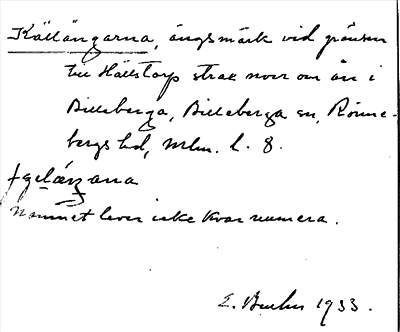 Källängarna, ängsmark vid gränsen
till Hällstorp strax norr om ån i
Billeberga, Billeberga sn, Rönne-
bergs hd, Mlm. l. 8.
Namnet lever icke kvar numera.
1933.